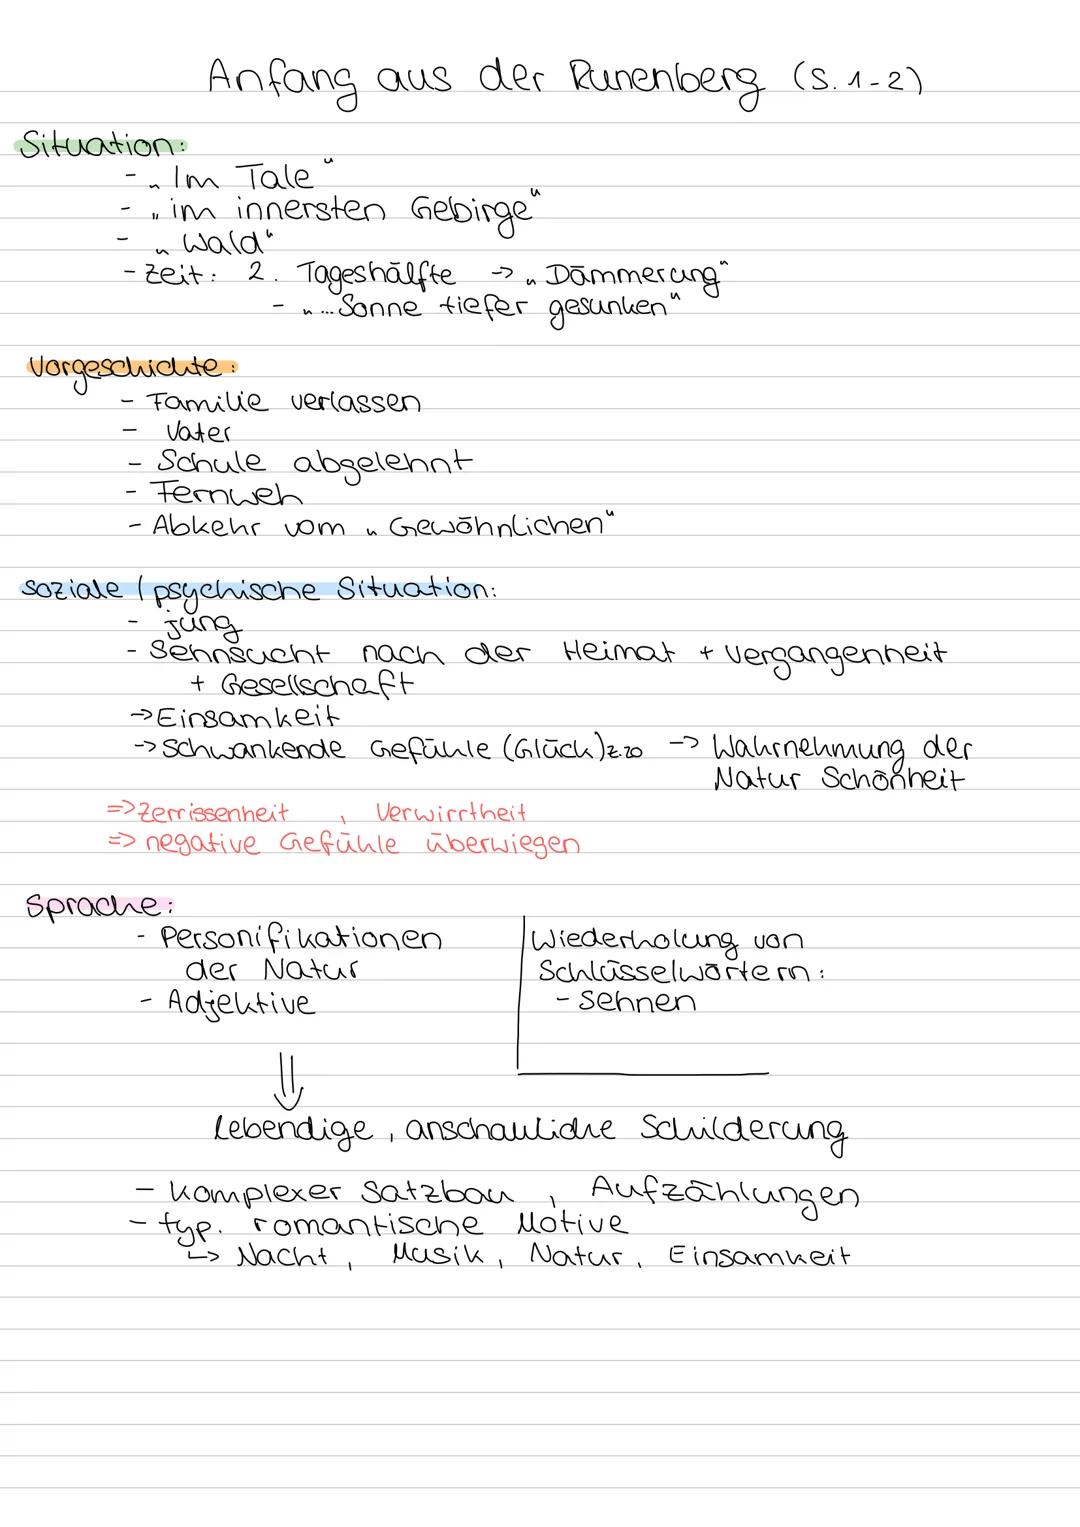 Anfang aus der Runenberg (S. 1-2)
Situation:
- „Im Tale“
- „im innersten Gebirge“
- „Wald“
- Zeit: 2. Tageshälfte -> „Dämmerung“
- „...Sonne tiefer gesunken“
Vorgeschichte:
- Familie verlassen
- Vater
- Schule abgelehnt
- Fernweh
- Abkehr vom „Gewöhnlichen“
soziale / psychische Situation:
- jung
- Sehnsucht nach der Heimat + Vergangenheit
+ Gesellschaft
-> Einsamkeit
-> Schwankende Gefühle (Glück) z.20 -> Wahrnehmung der
Natur Schönheit
=> Zerrissenheit, Verwirrtheit
=> negative Gefühle überwiegen
Sprache:
- Personifikationen
der Natur
- Adjektive
Wiederholung von
Schlüsselwörtern:
- Sehnen
⇓
Lebendige, anschauliche Schilderung
- komplexer Satzbau, Aufzählungen
- typ. romantische Motive
↳ Nacht, Musik, Natur, Einsamkeit